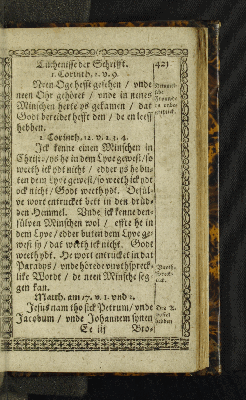 Tüchenisse der Schrifft. 421
1. Corinth. 2. v. 9.
Neen Oge hefft gesehen / vnde
neen Ohr gehöret / vnde in nenes
Minschen herte ys gekamen / dat
Godt bereidet hefft den / de en leeff
hebben.
2. Corinth. 12. v. 2. 3. 4.
Ick kenne einen Minschen in
Christo / ys he in dem Lyve gewest / so
weeth ick ydt nicht / edder ys he bu-
ten dem Lyve gewest / so weeth ick ydt
ock nicht / Godt weeth ydt. Desül-
ve wort entrucket beth in den drüd-
den Hemmel. Vnde ick kenne den-
sülven Minschen wol / efft he in
dem Lyve / edder buten dem Lyve ge-
west sy / dat weeth ick nicht. Godt
weeth ydt. He wort entrucket in dat
Paradys / vnde hörede vnuthspreck-
like Wordt / de neen Minsche seg-
gen kan.
Matth. am 17. v. 1. vnd 2.
Jesus nam tho sick Petrum / vnde
Jacobum / vnde Johannem synen
Ee iij Bro-